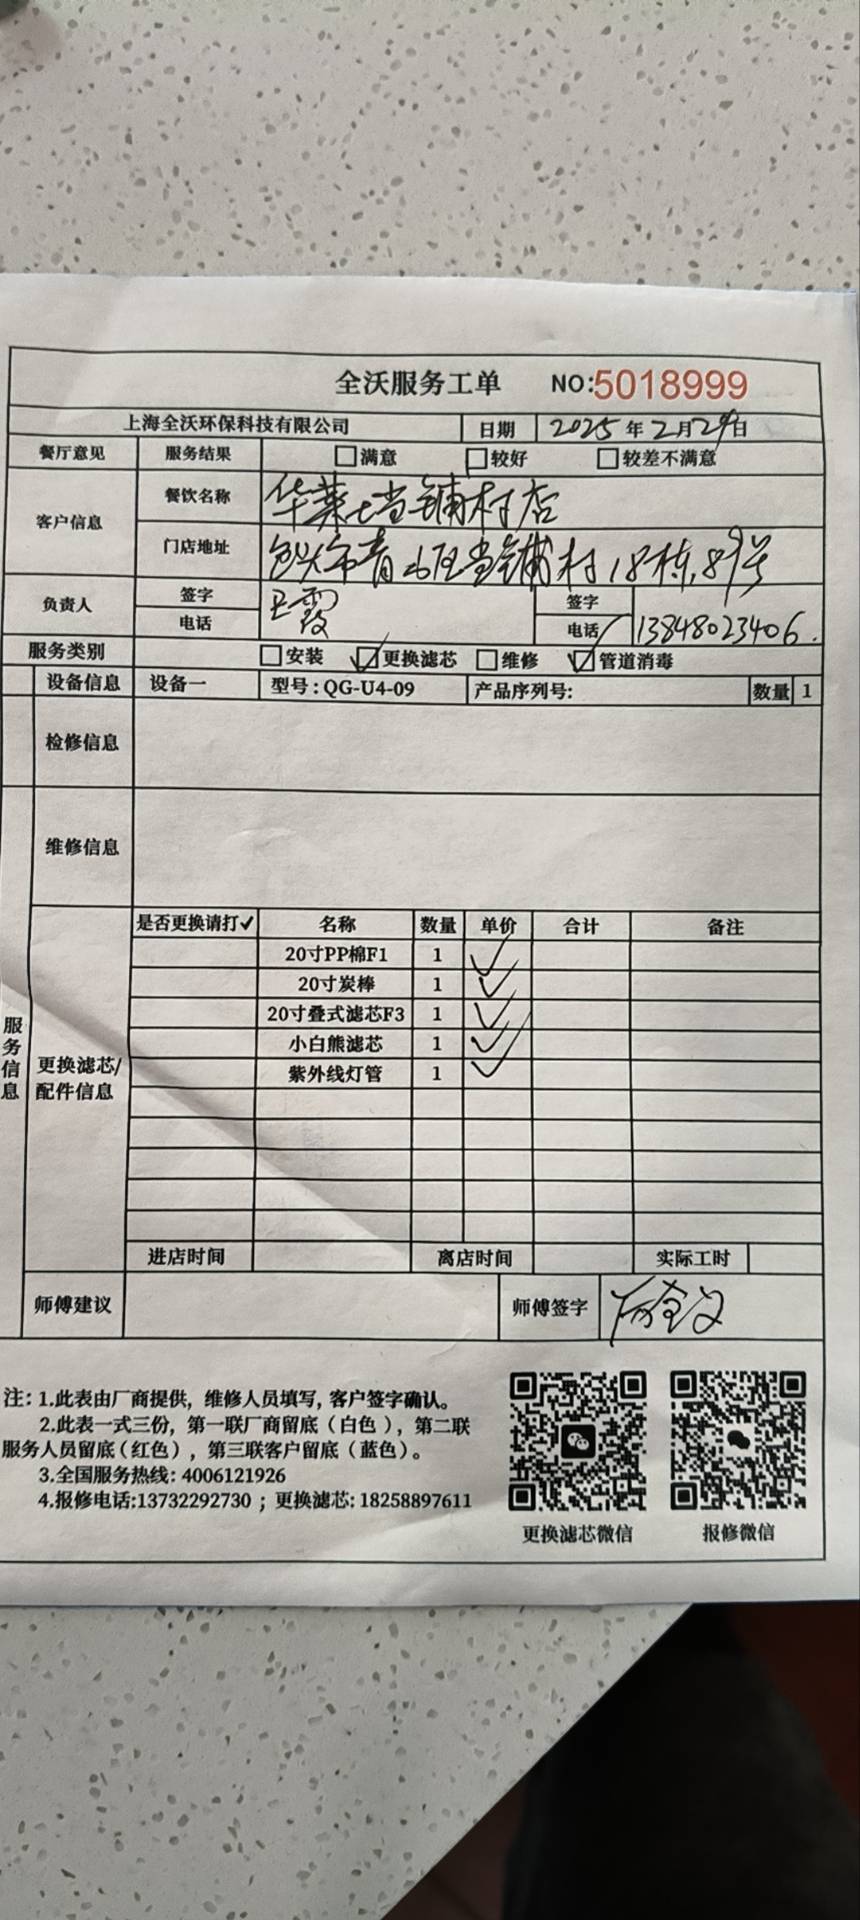 全沃服务工单 NO:5018999
上海全沃环保科技有限公司 日期 2025年2月29日
餐厅意见 服务结果 □满意 □较好 □较差不满意
客户信息 餐饮名称 华莱士当铺村店
门店地址 包头市青山区当铺村18栋,89号
负责人 签字 王霞 签字
电话 电话 13848023406.
服务类别 □安装 ☑更换滤芯 □维修 ☑管道消毒
设备信息 设备一 型号:QG-U4-09 产品序列号: 数量 1
检修信息
维修信息
服务信息
更换滤芯/配件信息
是否更换请打✓ 名称 数量 单价 合计 备注
20寸PP棉F1 1 ✓
20寸炭棒 1 ✓
20寸叠式滤芯F3 1 ✓
小白熊滤芯 1 ✓
紫外线灯管 1 ✓
进店时间 离店时间 实际工时
师傅建议 师傅签字
注: 1.此表由厂商提供, 维修人员填写, 客户签字确认。
2.此表一式三份, 第一联厂商留底(白色), 第二联
服务人员留底(红色), 第三联客户留底(蓝色)。
3.全国服务热线: 4006121926
4.报修电话:13732292730 ; 更换滤芯: 18258897611
更换滤芯微信 报修微信